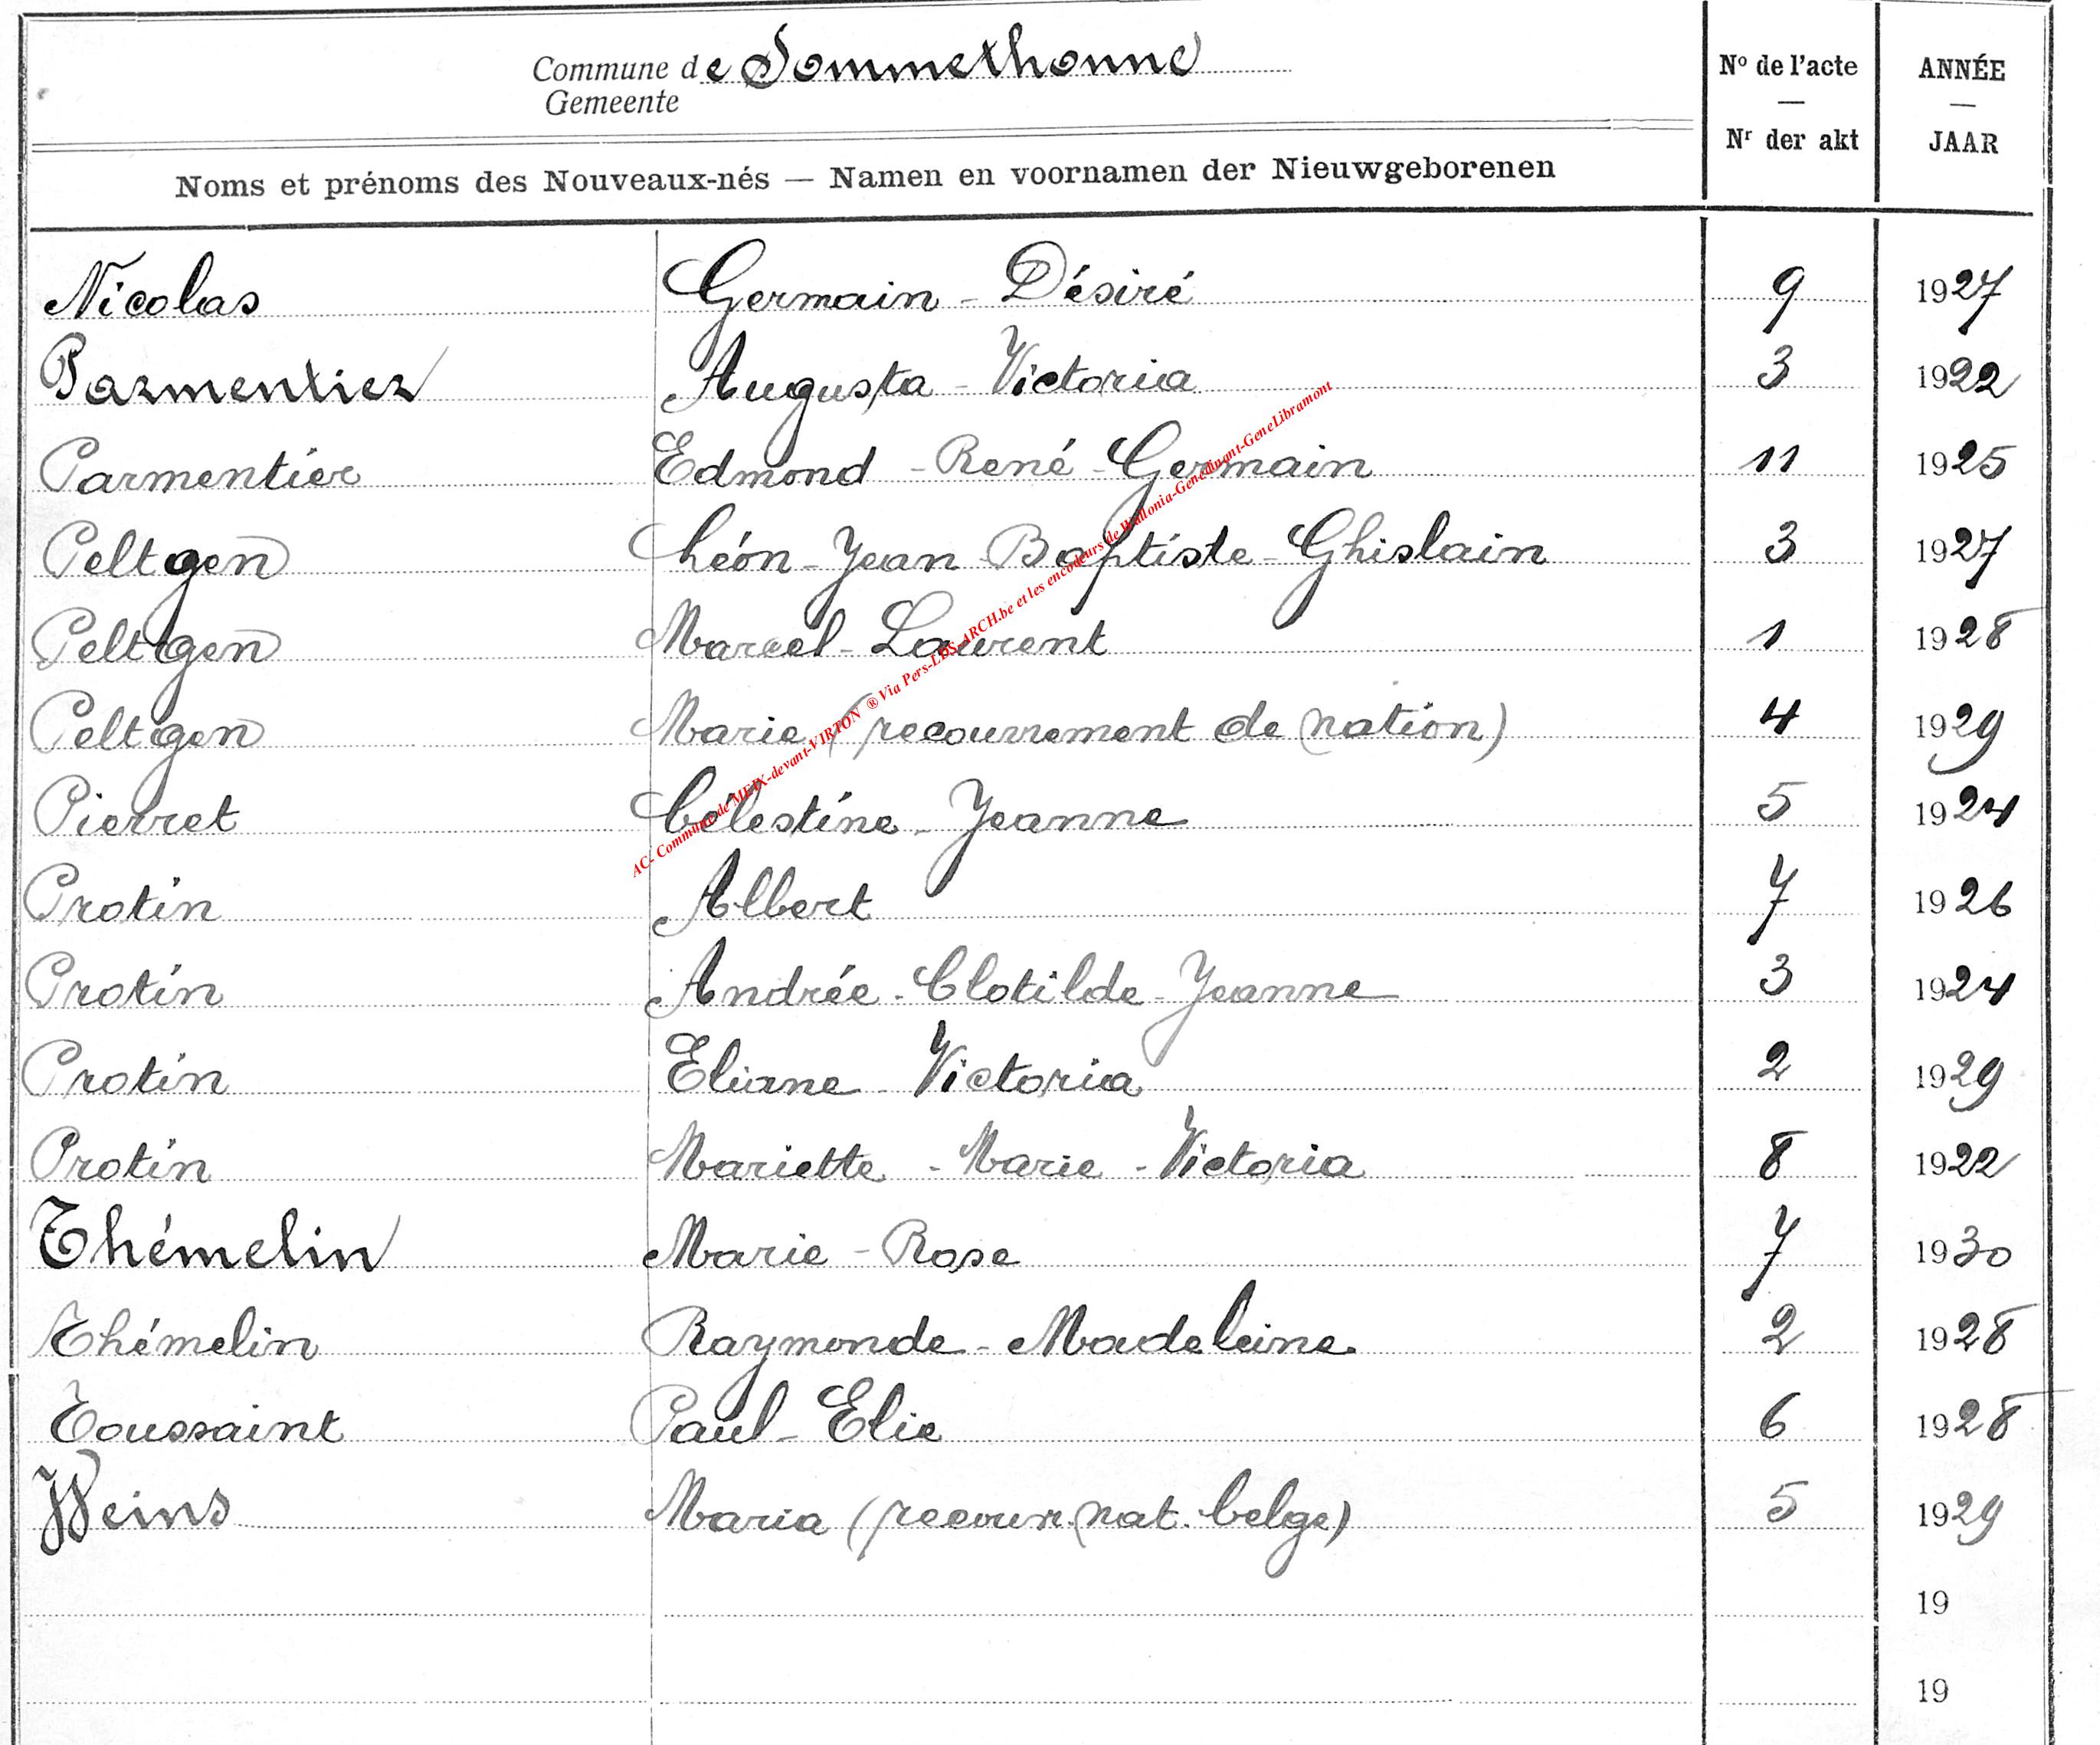 Commune de Sommethonne
Gemeente
Nº de l'acte
—
Nr der akt
ANNÉE
—
JAAR
Noms et prénoms des Nouveaux-nés — Namen en voornamen der Nieuwgeborenen
Nicolas Germain - Désiré 9 1927
Parmentier Augusta - Victoria 3 1922
Parmentier Edmond - René - Germain 11 1925
Peltgen Léon - Jean Baptiste - Ghislain 3 1927
Peltgen Marcel - Laurent 1 1928
Peltgen Marie (recouvrement de nation) 4 1929
Pierret Célestine - Jeanne 5 1924
Protin Albert 7 1926
Protin Andrée - Clotilde - Jeanne 3 1924
Protin Eliane - Victoria 2 1929
Protin Mariette - Marie - Victoria 8 1922
Thémelin Marie - Rose 7 1930
Thémelin Raymonde - Madeleine 2 1928
Toussaint Paul - Elie 6 1928
Weins Maria (recouvr. nat. belge) 5 1929
19
19
AC- Commune de MEIX-devant-VIRTON ® Via Pers-LDS-ARCH.be et les encodeurs de Wallonia-GeneDinant-GeneLibramont